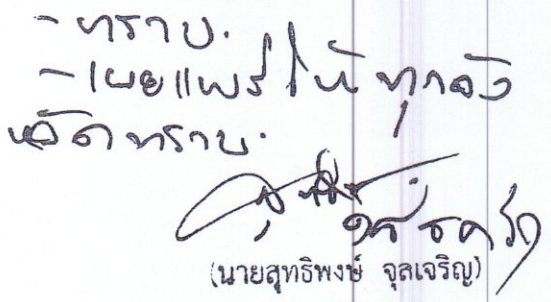 - ทราบ.
- เผยแพร่ให้ทุกจัง
หวัดทราบ.
(นายสุทธิพงษ์ จุลเจริญ)